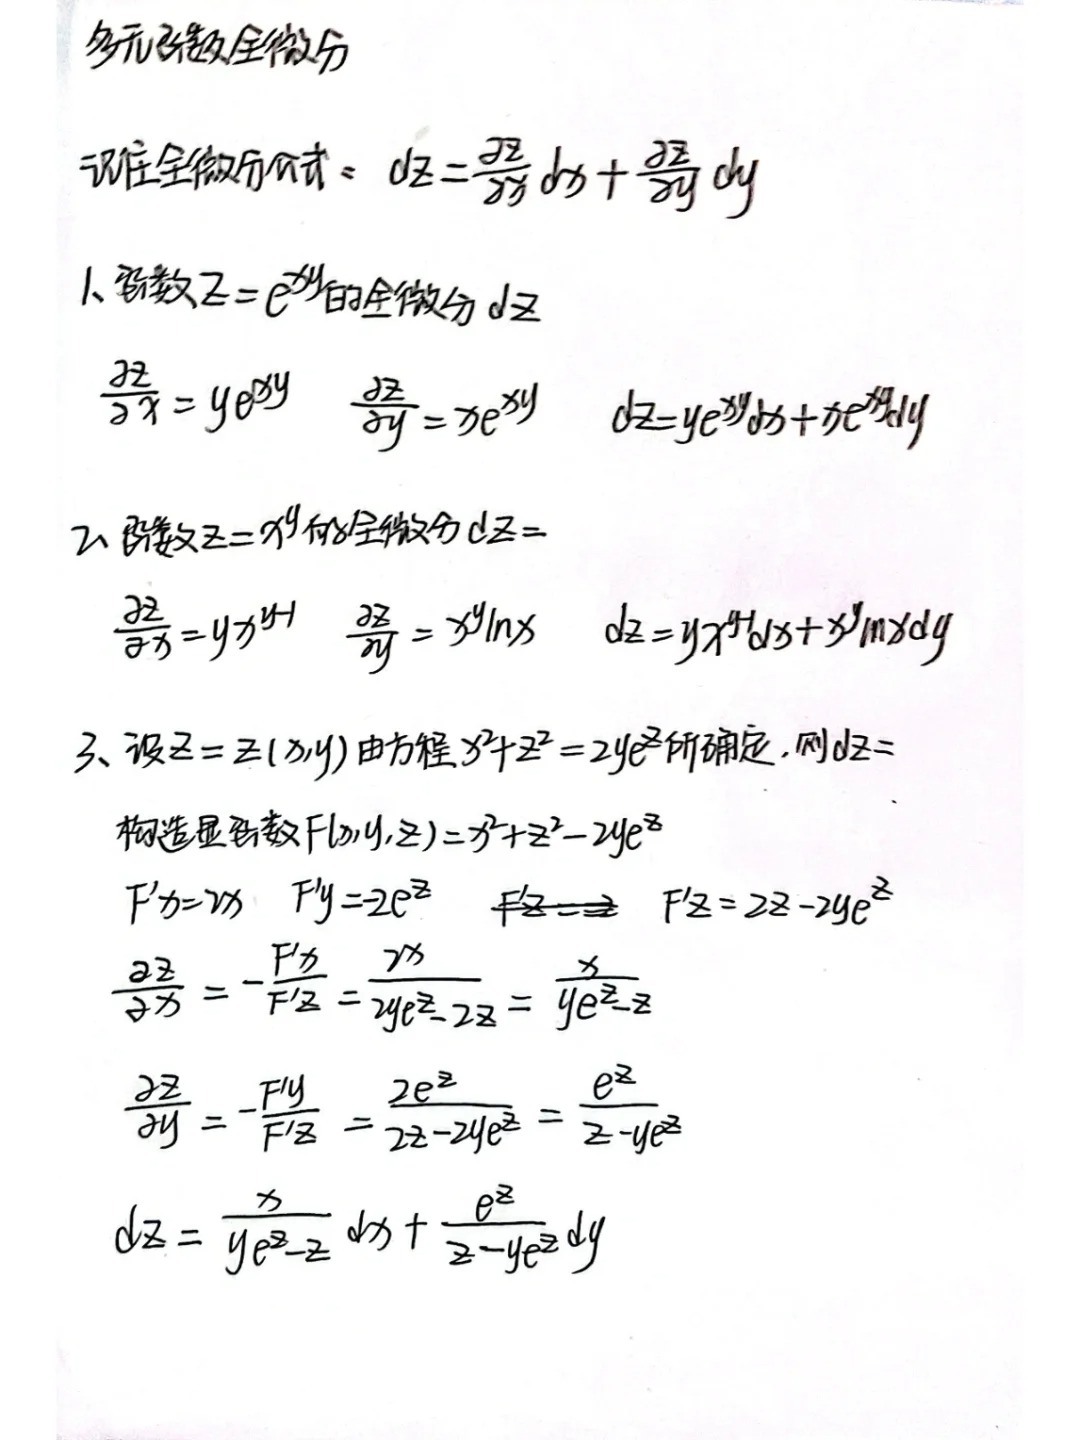 多元函数全微分
记住全微分公式: dz = ∂z/∂x dx + ∂z/∂y dy
1、函数 z = e^{xy} 的全微分 dz
∂z/∂x = ye^{xy}  ∂z/∂y = xe^{xy}  dz = ye^{xy}dx + xe^{xy}dy
2、函数 z = x^y 的全微分 dz =
∂z/∂x = yx^{y-1}  ∂z/∂y = x^y lnx  dz = yx^{y-1}dx + x^y lnxdy
3、设 z = z(x,y) 由方程 x²+z² = 2ye^z 所确定.则 dz =
构造显函数 F(x,y,z) = x²+z²-2ye^z
F'x = 2x  F'y = -2e^z  F'z = 2z-2ye^z
∂z/∂x = -F'x/F'z = 2x/(2ye^z-2z) = x/(ye^z-z)
∂z/∂y = -F'y/F'z = 2e^z/(2z-2ye^z) = e^z/(z-ye^z)
dz = x/(ye^z-z) dx + e^z/(z-ye^z) dy